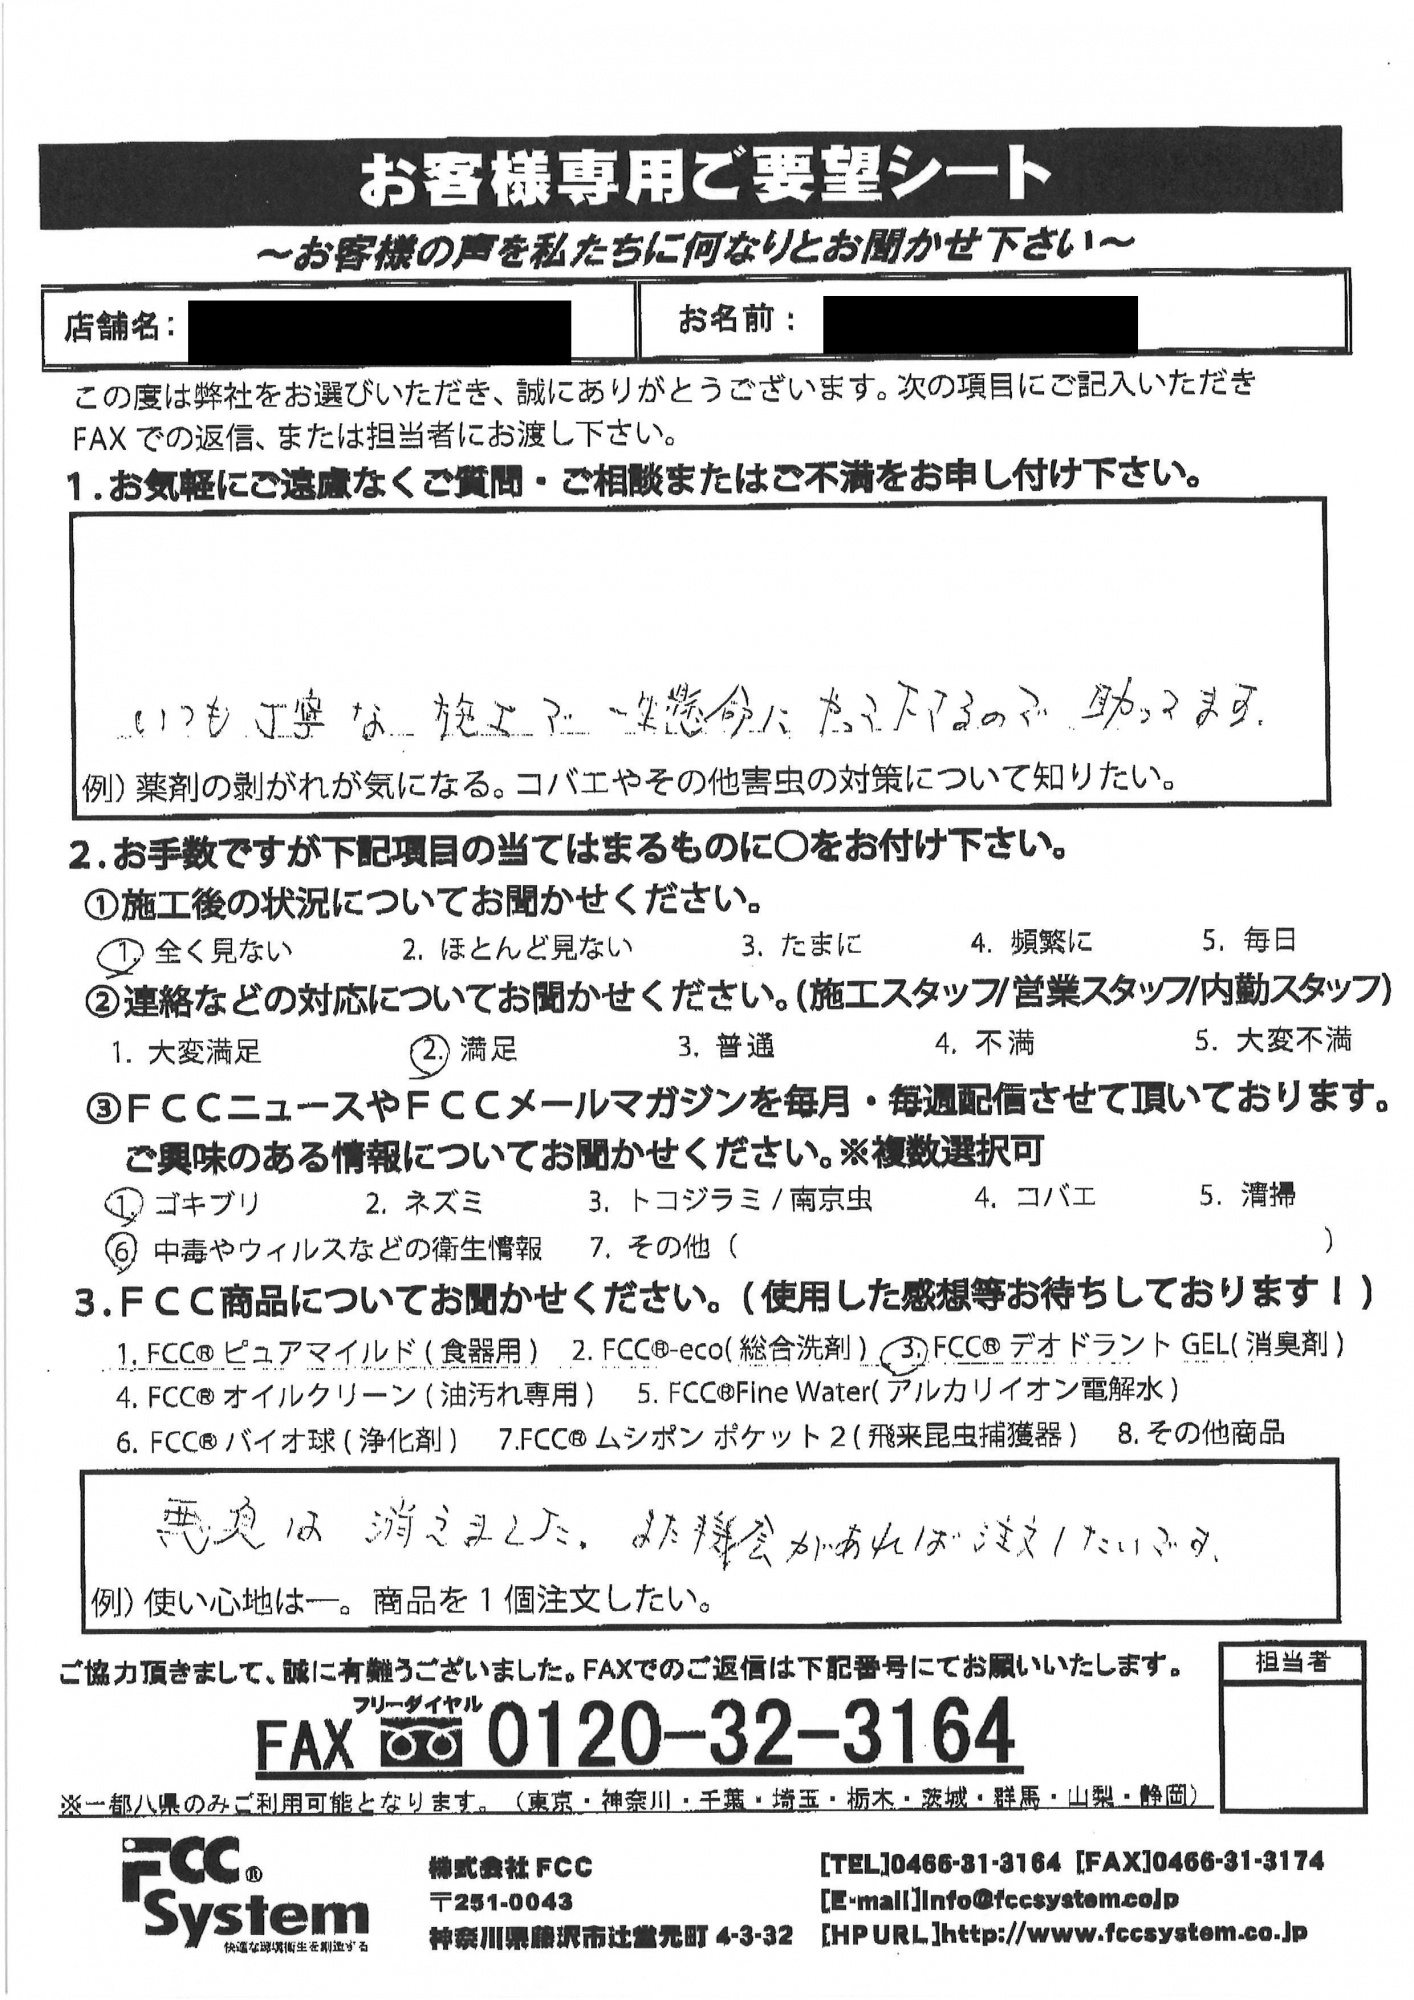 お客様専用ご要望シート
～お客様の声を私たちに何なりとお聞かせ下さい～
店舗名： お名前：
この度は弊社をお選びいただき、誠にありがとうございます。次の項目にご記入いただき
FAXでの返信、または担当者にお渡し下さい。
1.お気軽にご遠慮なくご質問・ご相談またはご不満をお申し付け下さい。
いつも丁寧な施工で一生懸命にやって下さるので助ってます。
例）薬剤の剥がれが気になる。コバエやその他害虫の対策について知りたい。
2.お手数ですが下記項目の当てはまるものに○をお付け下さい。
①施工後の状況についてお聞かせください。
1. 全く見ない 2. ほとんど見ない 3. たまに 4. 頻繁に 5. 毎日
②連絡などの対応についてお聞かせください。(施工スタッフ/営業スタッフ/内勤スタッフ)
1. 大変満足 2. 満足 3. 普通 4. 不満 5. 大変不満
③ＦＣＣニュースやＦＣＣメールマガジンを毎月・毎週配信させて頂いております。
ご興味のある情報についてお聞かせください。※複数選択可
1. ゴキブリ 2. ネズミ 3. トコジラミ / 南京虫 4. コバエ 5. 清掃
6. 中毒やウィルスなどの衛生情報 7. その他（ ）
3.ＦＣＣ商品についてお聞かせください。(使用した感想等お待ちしております！)
1. FCC® ピュアマイルド ( 食器用 ) 2. FCC®-eco( 総合洗剤 ) 3. FCC® デオドラント GEL( 消臭剤 )
4. FCC® オイルクリーン ( 油汚れ専用 ) 5. FCC®Fine Water( アルカリイオン電解水 )
6. FCC® バイオ球 ( 浄化剤 ) 7.FCC® ムシポン ポケット 2 ( 飛来昆虫捕獲器 ) 8. その他商品
悪臭は消えました。また機会があれば注文したいです。
例）使い心地は―。商品を 1 個注文したい。
ご協力頂きまして、誠に有難うございました。FAXでのご返信は下記番号にてお願いいたします。
担当者
フリーダイヤル
FAX 0120-32-3164
※一都八県のみご利用可能となります。（東京・神奈川・千葉・埼玉・栃木・茨城・群馬・山梨・静岡）
FCC® System
快適な環境衛生を創造する
株式会社 FCC
〒251-0043
神奈川県藤沢市辻堂元町 4-3-32
[TEL]0466-31-3164 [FAX]0466-31-3174
[E-mail]info@fccsystem.co.jp
[HP URL]http://www.fccsystem.co.jp